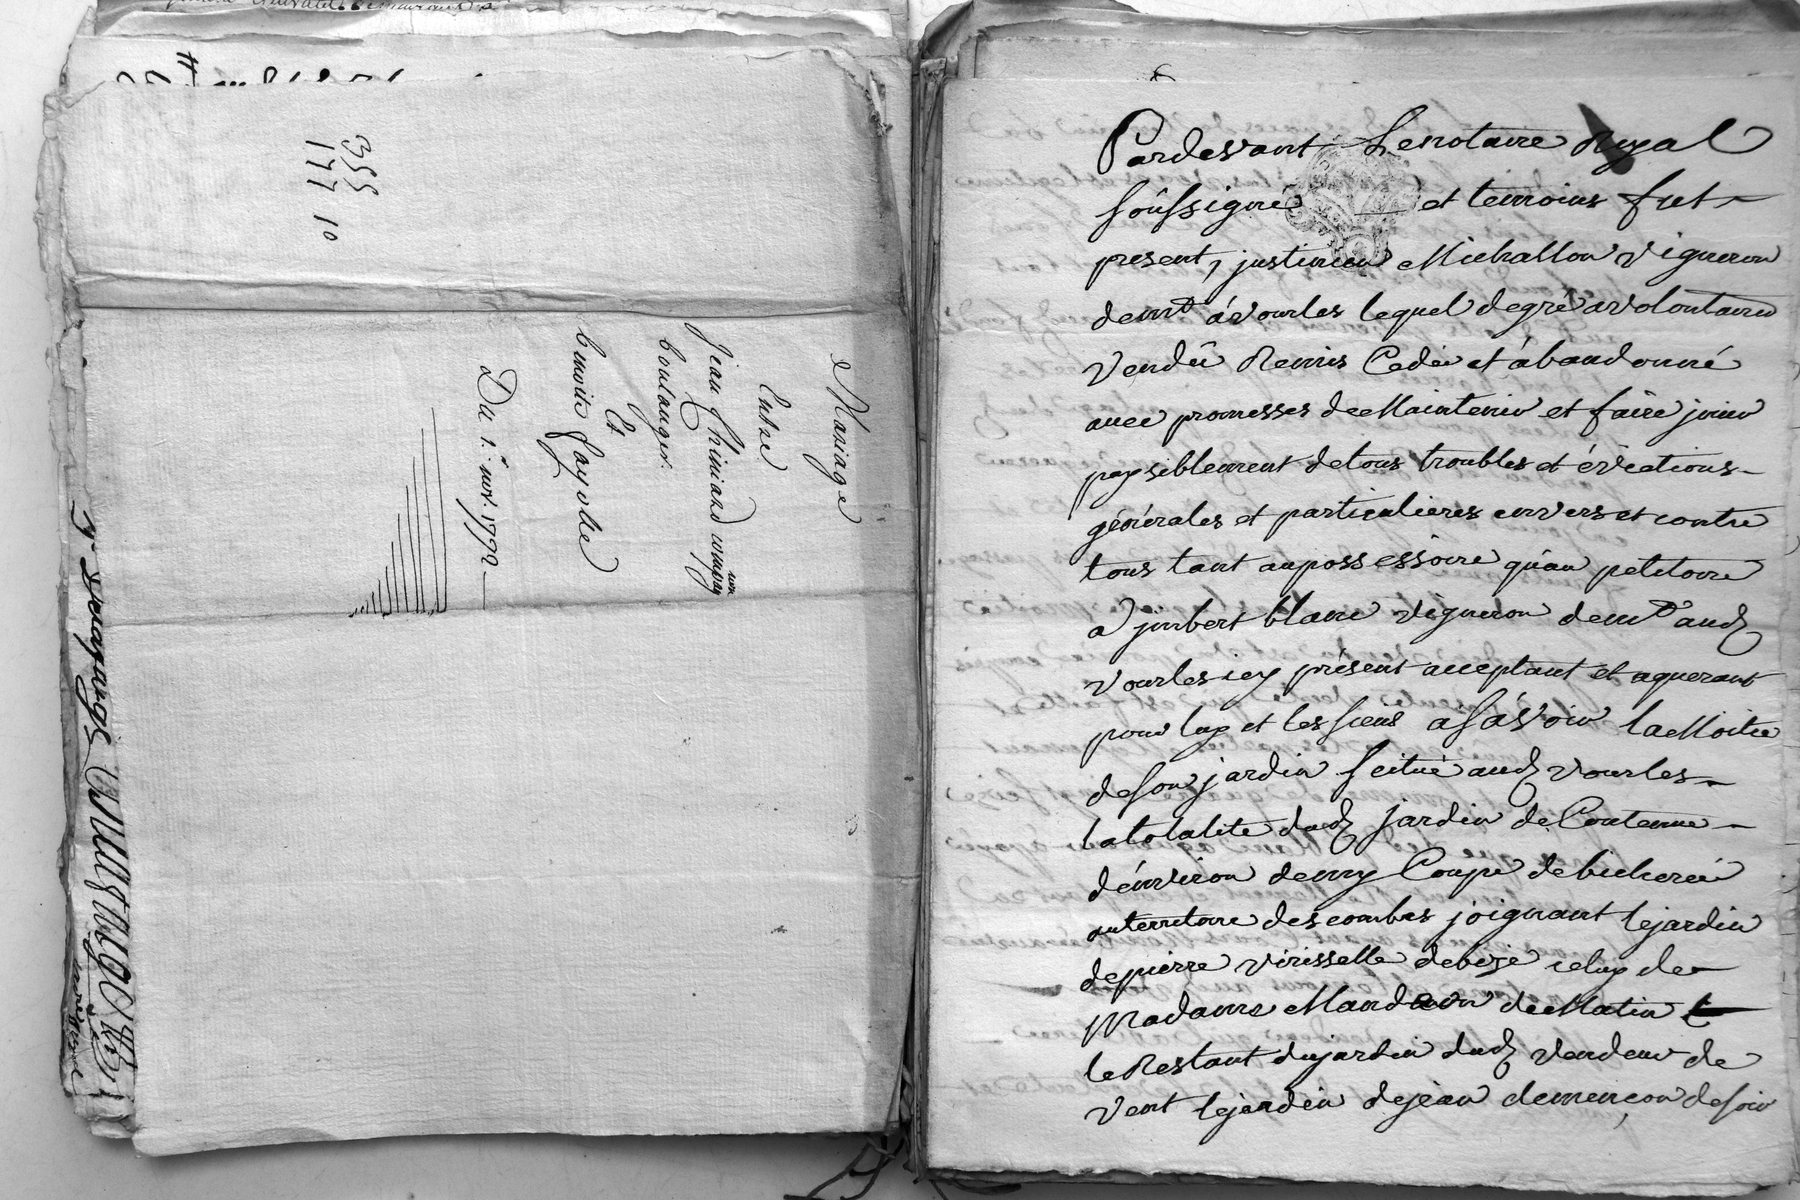 355
177 10
Mariage
Entre
Jean Chiniard compag
non
boulanger
Et
benoite fayolle
Du 1. 1792
Pardevant Le notaire Royal
soussigné et temoins fut
present, justinien Michallon vigneron
demt á vourles lequel de gré a volontairem
vendû Remis Cedée et ábandonné
avec promesses de Maintenir et faire jouir
paysiblement de tous troubles et évictions
générales et particulieres envers et contre
tous tant au possessoire qu'au petitoire
a jimbert blanc vigneron demt aud
vourles icy présent acceptant et aquerant
pour luy et les siens a sasvoir la Moitie
de son jardin scitué aud vourles
la totalité dud jardin de Contenue
d'énviron demy Coupe de bicherée
au territoire des combes joignant le jardin
de pierre virisselle de bize celuy de
Madame Mandron de Matin
le Restant du jardin dud vendeur de
vent le jardin de jean clemencon de soir